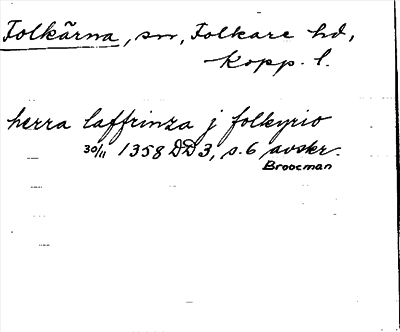 Folkärna, sn, Folkare hd,
Kopp. l.
herra laffrinza j folkyrio
30/11 1358 DD3, s. 6 avskr.
Broocman